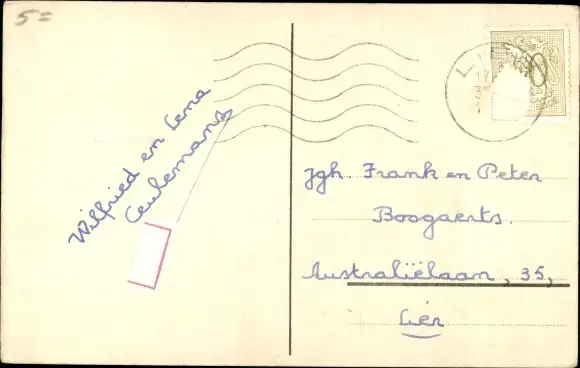 5=
Wilfried en Lena
Ceulemans
Jgh. Frank en Peter
Boogaerts.
Australiëlaan, 35,
Lier